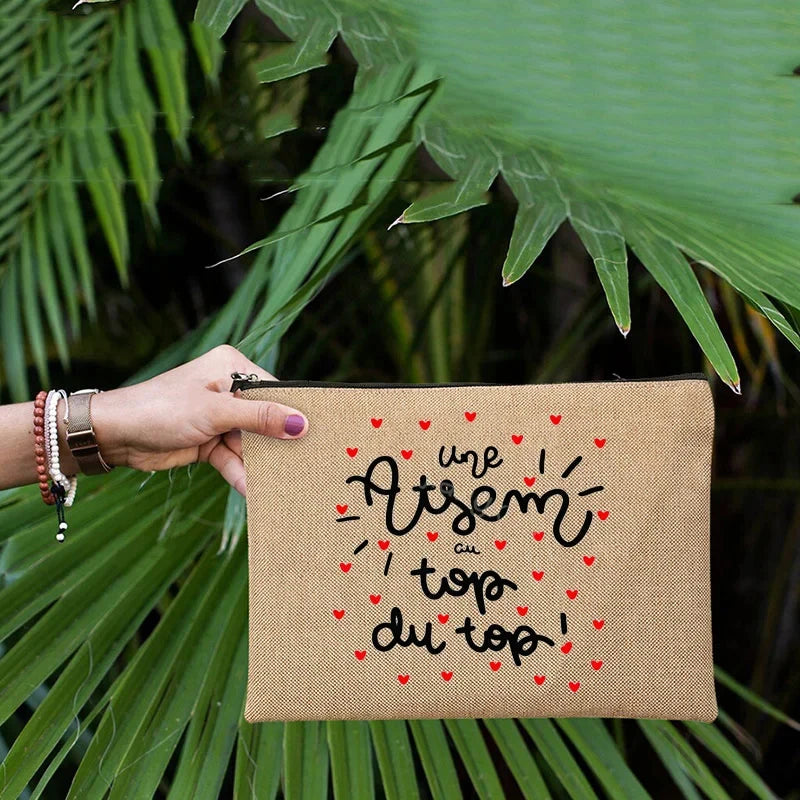 une
Atsem
au
top
du top!